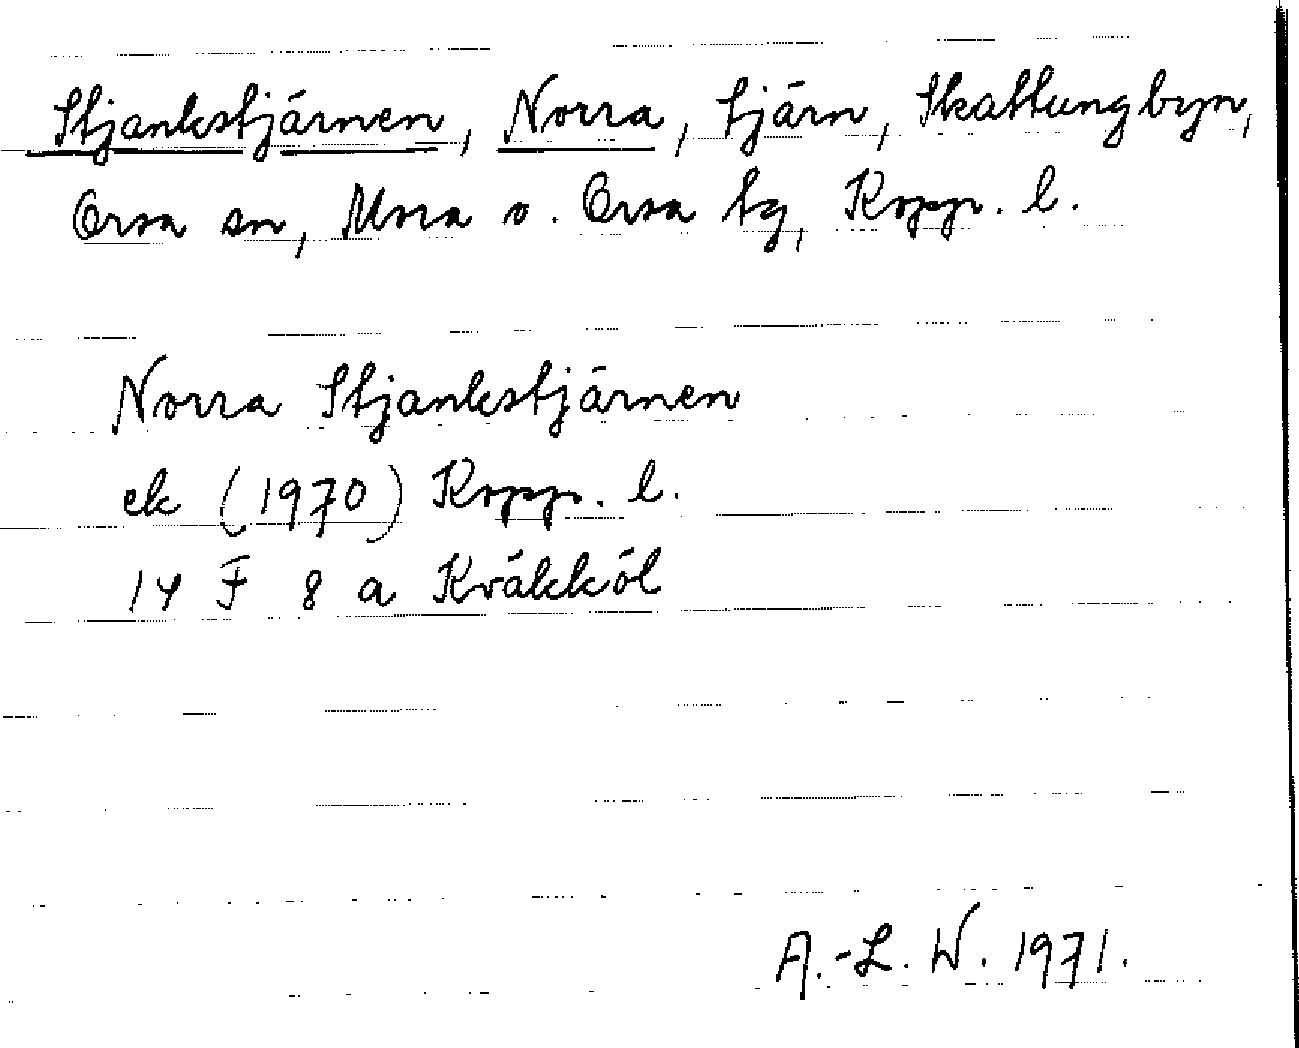 Stjankstjärnen, Norra, tjärn, Skattungbyn,
Orsa sn, Mora o. Orsa tg, Kopp. l.
Norra Stjankstjärnen
ek (1970) Kopp. l.
14 F 8 a Kväkköl
A.-L. W. 1971.